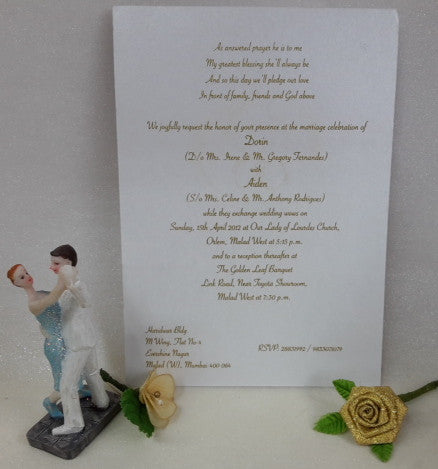 As answered prayer he is to me
My greatest blessing she'll always be
And so this day we'll pledge our love
In front of family, friends and God above
We joyfully request the honor of your presence at the marriage celebration of
Dorin
(D/o Mrs. Irene & Mr. Gregory Fernandes)
with
Aiden
(S/o Mrs. Celine & Mr. Anthony Rodrigues)
while they exchange wedding vows on
Sunday, 15th April 2012 at Our Lady of Lourdes Church,
Orlem, Malad West at 5:15 p.m.
and to a reception thereafter at
The Golden Leaf Banquet
Link Road, Near Toyota Showroom,
Malad West at 7:30 p.m.
Haridwar Bldg
M Wing, Flat No-4
Evershine Nagar
Malad (W), Mumbai 400 064
RSVP: 28831992 / 9833678679